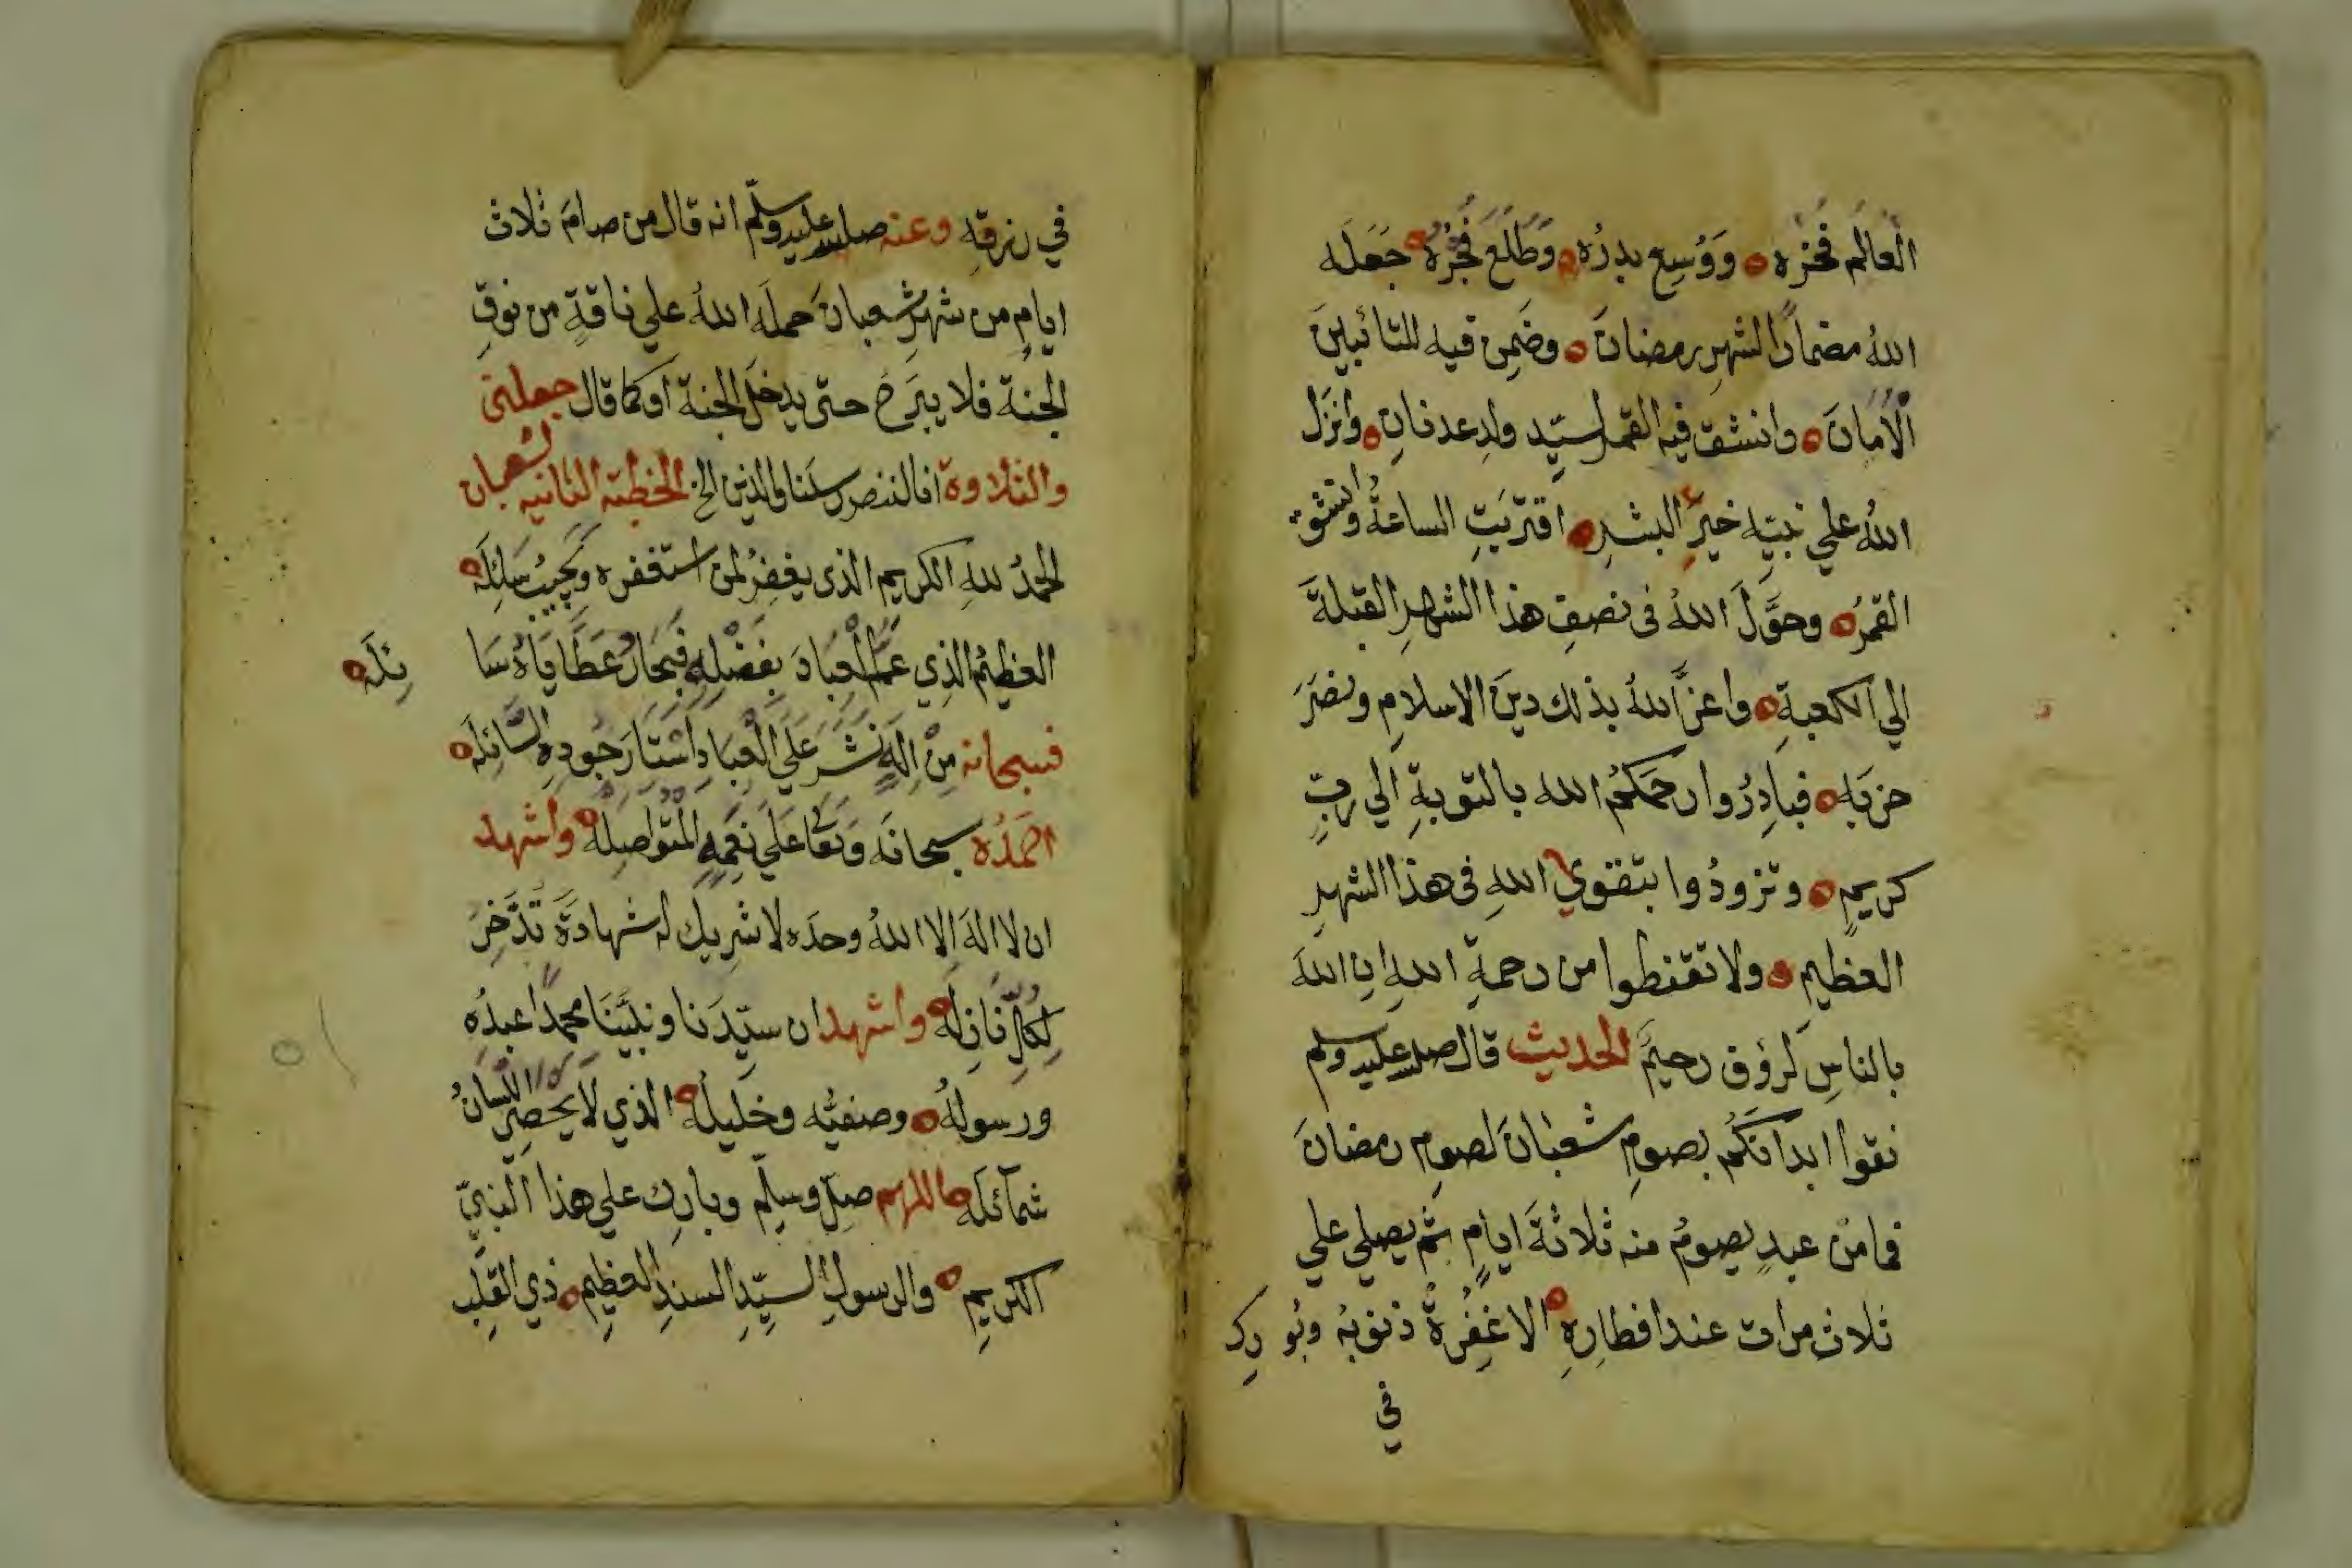 العالم فخره ووسع بدره وطلع فجره جعله
الله مضمارا لشهر رمضان وضمن فيه للتائبين
الامان وانشق فيه القمر لسيد ولد عدنان وانزل
الله علي نبيه خير البشر اقتربت الساعة وانشق
القمر وحول الله في نصف هذا الشهر القبلة
الي الكعبة واعز الله بذلك دين الاسلام ونصر
حزبه فبادروا رحمكم الله بالتوبة الي رب
كريم وتزودوا بتقوي الله في هذا الشهر
العظيم ولا تقنطوا من رحمة الله ان الله
بالناس لرؤف رحيم الحديث قال صلى الله عليه وسلم
نقوا ابدانكم بصوم شعبان لصوم رمضان
فما من عبد يصوم منه ثلاثة ايام ثم يصلي علي
ثلاث مرات عند افطاره الا غفرة ذنوبه وبورك
في
في رزقه وعنه صلى الله عليه وسلم انه قال من صام ثلاث
ايام من شهر شعبان حمله الله علي ناقة من نوق
الجنة فلا يبرح حتى يدخل الجنة او كما قال جعلني
والتلاوة انا لننصر رسلنا والذين الخ الخطبة الثانيه لشعبان
الحمد لله الكريم الذي يغفر لمن استغفره ويجيب سائله
العظيم الذي عم العباد بفضله فبحار عطاياه سائله
فسبحانه من اله نشر علي العباد استار جوده السائله
احمده سبحانه وتعا علي نعمه المتواصله واشهد
ان لا اله الا الله وحده لا شريك له شهادة تدخر
لكل نازله واشهد ان سيدنا ونبينا محمدا عبده
ورسوله وصفيه وخليله الذي لا يحصر اللسان
شمائله اللهم صل وسلم وبارك علي هذا النبي
الكريم والرسول السيد السند العظيم ذي القلب